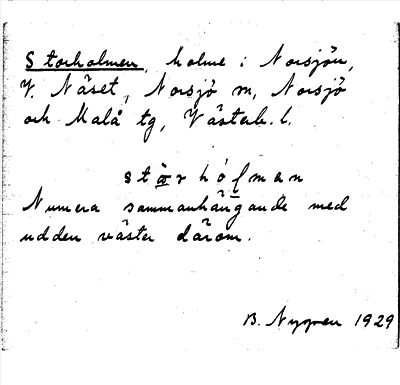 Storholmen, holme i Norsjön,
V. Näset, Norsjö sn, Norsjö
och Malå tg, Västerb. l.
stōrhólman
Numera sammanhängande med
udden väster därom.
B. Nygren 1929